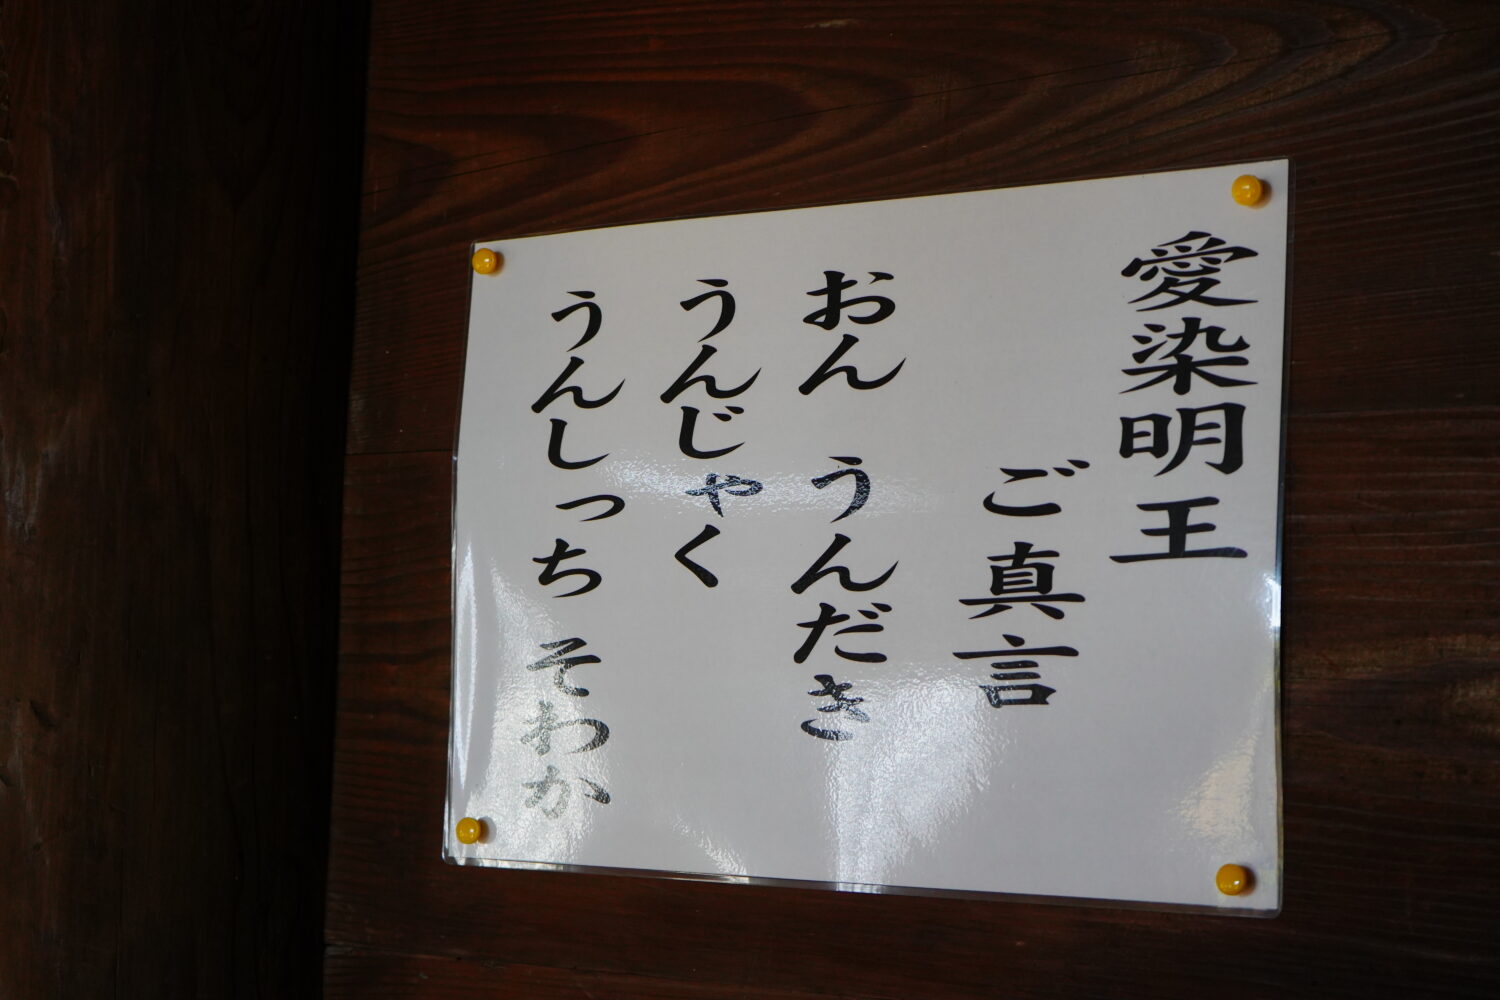 愛染明王
ご真言
おん うんだき
うんじゃく
うんしっち そわか